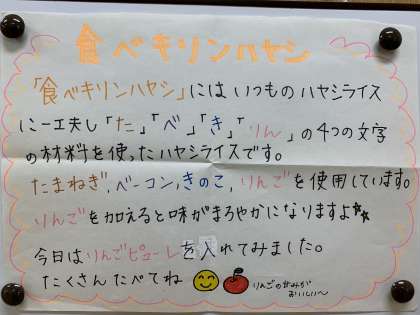 食べキリンハヤシ
「食べキリンハヤシ」にはいつものハヤシライス
に一工夫し「た」「べ」「き」「りん」の4つの文字
の材料を使ったハヤシライスです。
たまねぎ,ベーコン,きのこ,りんごを使用しています。
りんごを加えると味がまろやかになりますよ☆☆
今日はりんごピューレを入れてみました。
たくさんたべてね
りんごの甘みが
おいしい〜